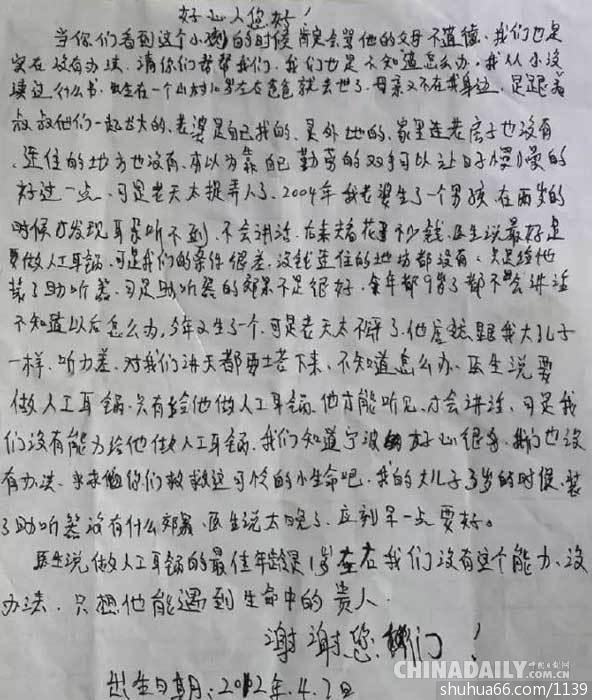 好心人您好！
当你们看到这个小孩的时候肯定会骂他的父母不道德、我们也是
实在没有办法、请你们帮帮我们、我们也是不知道怎么办、我从小没
读过什么书、出生在一个山村10岁左右爸爸就去世了、母亲又不在我身边、是跟着
叔叔他们一起长大的、老婆是自己找的、是外地的、家里连老房子也没有
、连住的地方也没有、本以为靠自己勤劳的双手可以让日子慢慢的
好过一点、可是老天太捉弄人了、2004年我老婆生了一个男孩、在两岁的
时候才发现耳朵听不到、不会讲话、后来花了不少钱、医生说最好是
要做人工耳蜗、可是我们的条件很差、没钱连住的地方都没有、只是给他
装了助听器、可是助听器的效果不是很好、今年都9岁了都不会讲话
不知道以后怎么办、今年又生了一个、可是老天太不公平了、他居然跟我大儿子
一样、听力差、对我们讲天都要塌下来、不知道怎么办、医生说要
做人工耳蜗、只有给他做人工耳蜗、他才能听见、才会讲话、可是我
们没有能力给他做人工耳蜗、我们知道宁波的好心很多、我们也没
有办法、求求你们救救这可怜的小生命吧、我的大儿子3岁的时候、装
了助听器没有什么效果、医生说太晚了、应到早一点要好。
医生说做人工耳蜗的最佳年龄是1岁左右我们没有这个能力、没
办法、只想他能遇到生命中的贵人、
谢谢您们！
出生日期：2012年.4.2日
CHINADAILY 中国日报网
shuhua66.com/1139